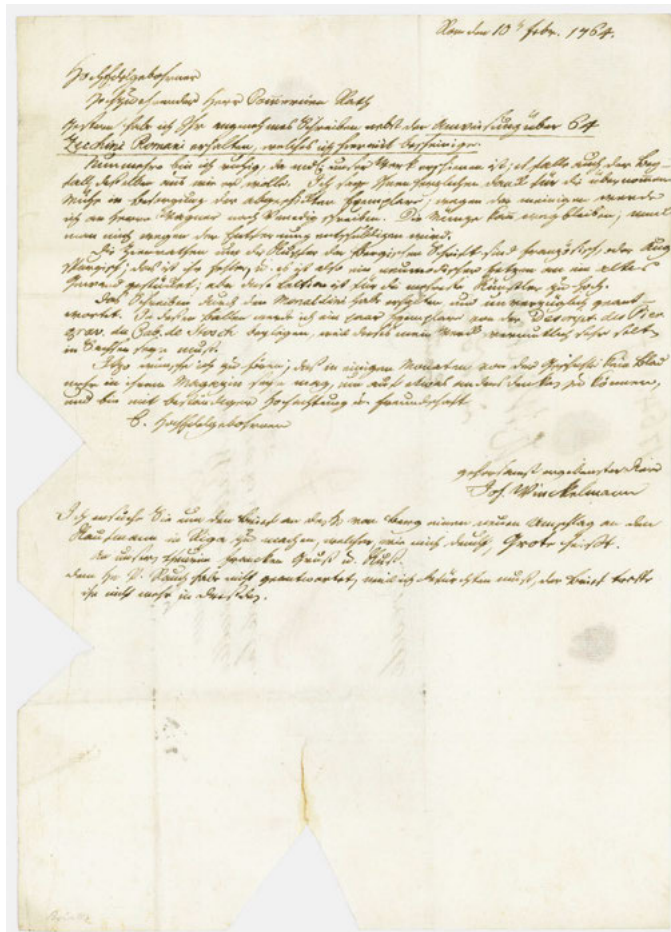 Rom den 10 febr. 1764.
Hochedelgebohrner
Herr Commercien Rath
Gestern habe ich Ihr angenehmes Schreiben nebst der Anweisung über 64
Zecchini Romani erhalten, welches ich hiermit bescheinige.
Nunmehro bin ich ruhig, da unser Werk erschienen ist; es falle auch der Bey-
fall desselben aus wie er wolle. Ich sage Ihnen herzlichen Dank für die übernommene
Mühe in Besorgung der Exemplare; wegen der meinigen werde
ich an Herrn Wagner nach Venedig schreiben. Die Menge kann weg bleiben; weil
man mich wegen der Forderung entschuldigen wird.
Die Zierrathen und die Kupfer der Bergischen Schrift sind Französisch, oder Aug-
spurgisch; das ist ein neumodischer an ein altes
Gewand; aber diese Lection ist für die Künstler zu hoch.
Das Schreiben durch den Monaldini habe erhalten und unverzüglich geant-
wortet. In dessen Ballen werde ich ein paar Exemplare von der Descript. des Pier.
grav. du Cab. de Stosch beylegen, weil dieses mein Werk vermuthlich sehr selten
in Sachsen seyn muß.
wünsche ich zu hören, daß in einigen Monaten von der Geschichte kein Blat
mehr in ihrem Magazin seyn mag, um auf etwas anders denken zu können,
und bin mit beständiger Hochachtung u. Freundschaft
E. Hochedelgebohrnen
gehorsamst ergebenster Diener
Joh. Winckelmann
Ich ersuche Sie um den Brief an den H. von Berg einen neuen Umschlag an den
Kaufmann in Riga zu machen, welcher, wie mich deucht, Grote heißt.
An unsern theuren Francken Gruß u. Kuß.
dem Hn. P. Rauch habe nicht geantwortet, weil ich befürchten muß, der Brief treffe
ihn nicht mehr in Dresden.